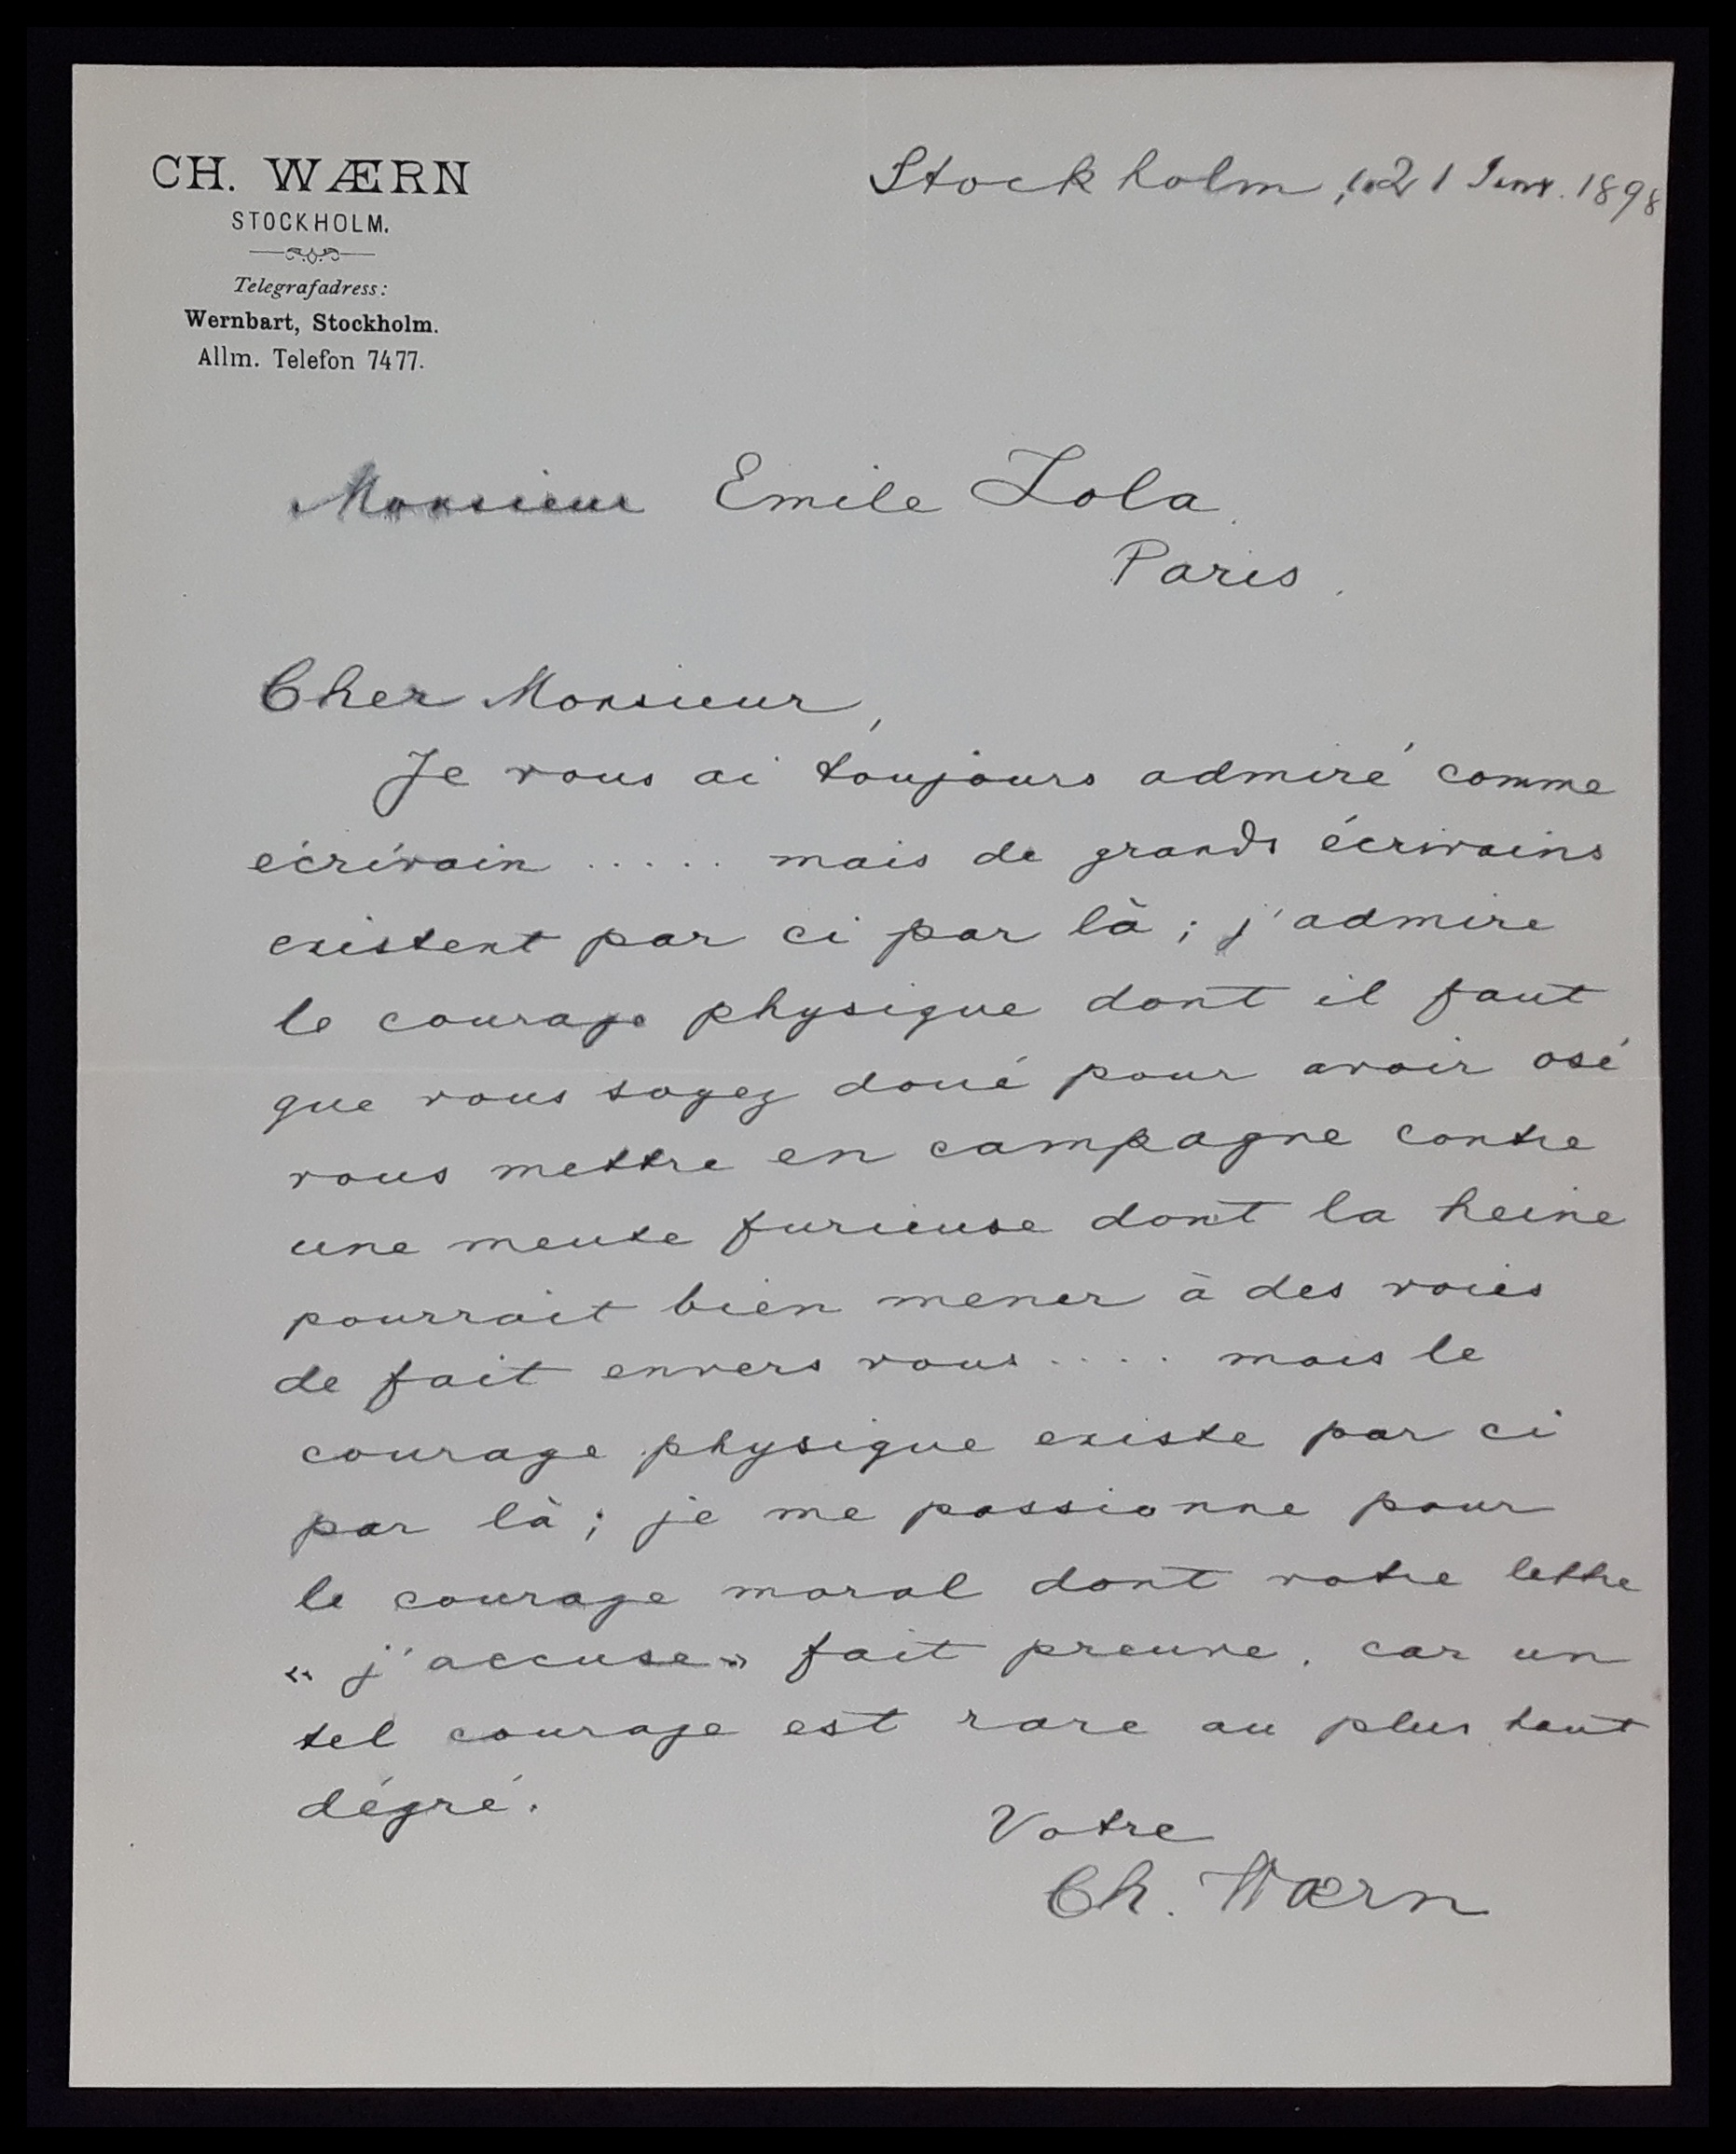 CH. WÆRN
STOCKHOLM.
Telegrafadress:
Wernbart, Stockholm.
Allm. Telefon 7477.
Stockholm, le 21 Janv. 1898
Monsieur Emile Zola.
Paris.
Cher Monsieur,
Je vous ai toujours admiré comme
écrivain ..... mais de grands écrivains
existent par ci par là; j'admire
le courage physique dont il faut
que vous soyez doué pour avoir osé
vous mettre en campagne contre
une meute furieuse dont la heine
pourrait bien mener à des voies
de fait envers vous .... mais le
courage physique existe par ci
par là; je me passionne pour
le courage moral dont votre lettre
« j'accuse » fait preuve. car un
tel courage est rare au plus haut
dégré.
Votre
Ch. Wærn